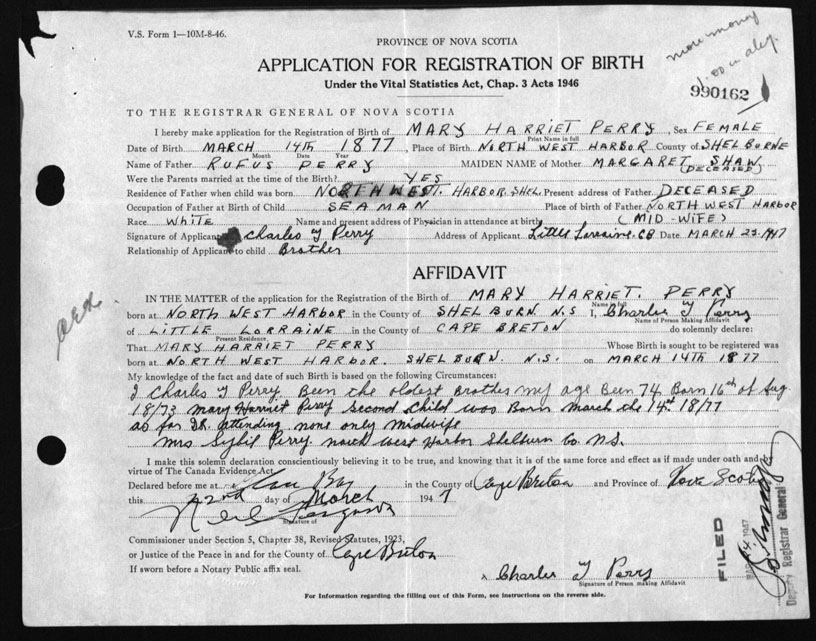 V.S. Form 1—10M-8-46.
more money
1.00 in aly.
PROVINCE OF NOVA SCOTIA
APPLICATION FOR REGISTRATION OF BIRTH
Under the Vital Statistics Act, Chap. 3 Acts 1946
990162
TO THE REGISTRAR GENERAL OF NOVA SCOTIA
I hereby make application for the Registration of Birth of MARY HARRIET PERRY, Sex FEMALE
Print Name in full
Date of Birth MARCH 14TH 1877, Place of Birth NORTH WEST HARBOR County of SHELBURNE
Month Date Year
Name of Father RUFUS PERRY MAIDEN NAME of Mother MARGARET SHAW
(DECEASED)
Were the Parents married at the time of Birth? YES
Residence of Father when child was born NORTHWEST. HARBOR. SHEL. Present address of Father DECEASED
Occupation of Father at Birth of Child SEAMAN Place of birth of Father NORTH WEST HARBOR
Race White Name and present address of Physician in attendance at birth (MID-WIFE)
Signature of Applicant Charles T Perry Address of Applicant Little Lorraine. CB Date MARCH 22. 1947
Relationship of Applicant to child Brother
AFFIDAVIT
IN THE MATTER of the application for the Registration of the Birth of MARY HARRIET. PERRY
Name in full
born at NORTH WEST HARBOR in the County of SHELBURN. N.S I, Charles T Perry
Name of Person Making Affidavit
of LITTLE LORRAINE in the County of CAPE BRETON do solemnly declare:
Present Residence
That MARY HARRIET PERRY Whose Birth is sought to be registered was
born at NORTH WEST HARBOR. SHELBURN. N.S. on MARCH 14TH 1877
My knowledge of the fact and date of such Birth is based on the following Circumstances:
I Charles T Perry. Been the oldest Brother my age Been 74. Born 16th of Aug
18/73 Mary Harriet Perry second child was Born March the 14th 18/77
as for Dr. attending none only midwife
Mrs Sybil Perry. north west Harbor Shelburn Co. N.S.
I make this solemn declaration conscientiously believing it to be true, and knowing that is of the same force and effect as if made under oath and by
virtue of The Canada Evidence Act.
Declared before me at in the County of Cape Breton and Province of Nova Scotia
this 22nd day of March 1947
Neil Ferguson
Signature of
Commissioner under Section 5, Chapter 38, Revised Statutes, 1923,
or Justice of the Peace in and for the County of Cape Breton
If sworn before a Notary Public affix seal.
x Charles T Perry
Signature of Person making Affidavit
FILED
1947
Deputy Registrar General
For Information regarding the filling out of this Form, see instructions on the reverse side.